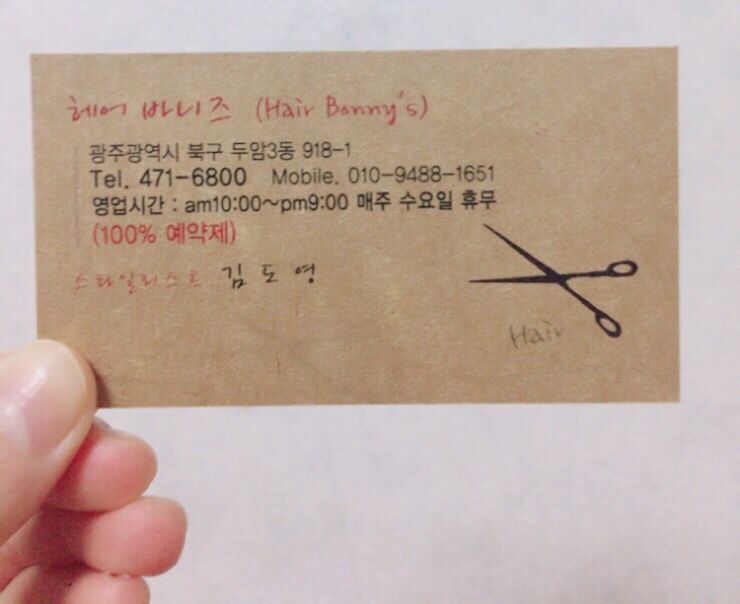 헤어 바니즈 (Hair Bonny's)
광주광역시 북구 두암3동 918-1
Tel. 471-6800 Mobile. 010-9488-1651
영업시간 : am10:00~pm9:00 매주 수요일 휴무
(100% 예약제)
스타일리스트 김도영
Hair